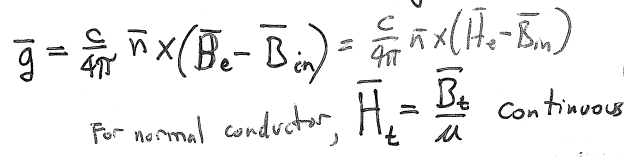 ḡ = c/4π n̄ × (B̄e - B̄in) = c/4π n̄ × (H̄e - B̄in)
For normal conductor, H̄t = B̄t/μ continuous